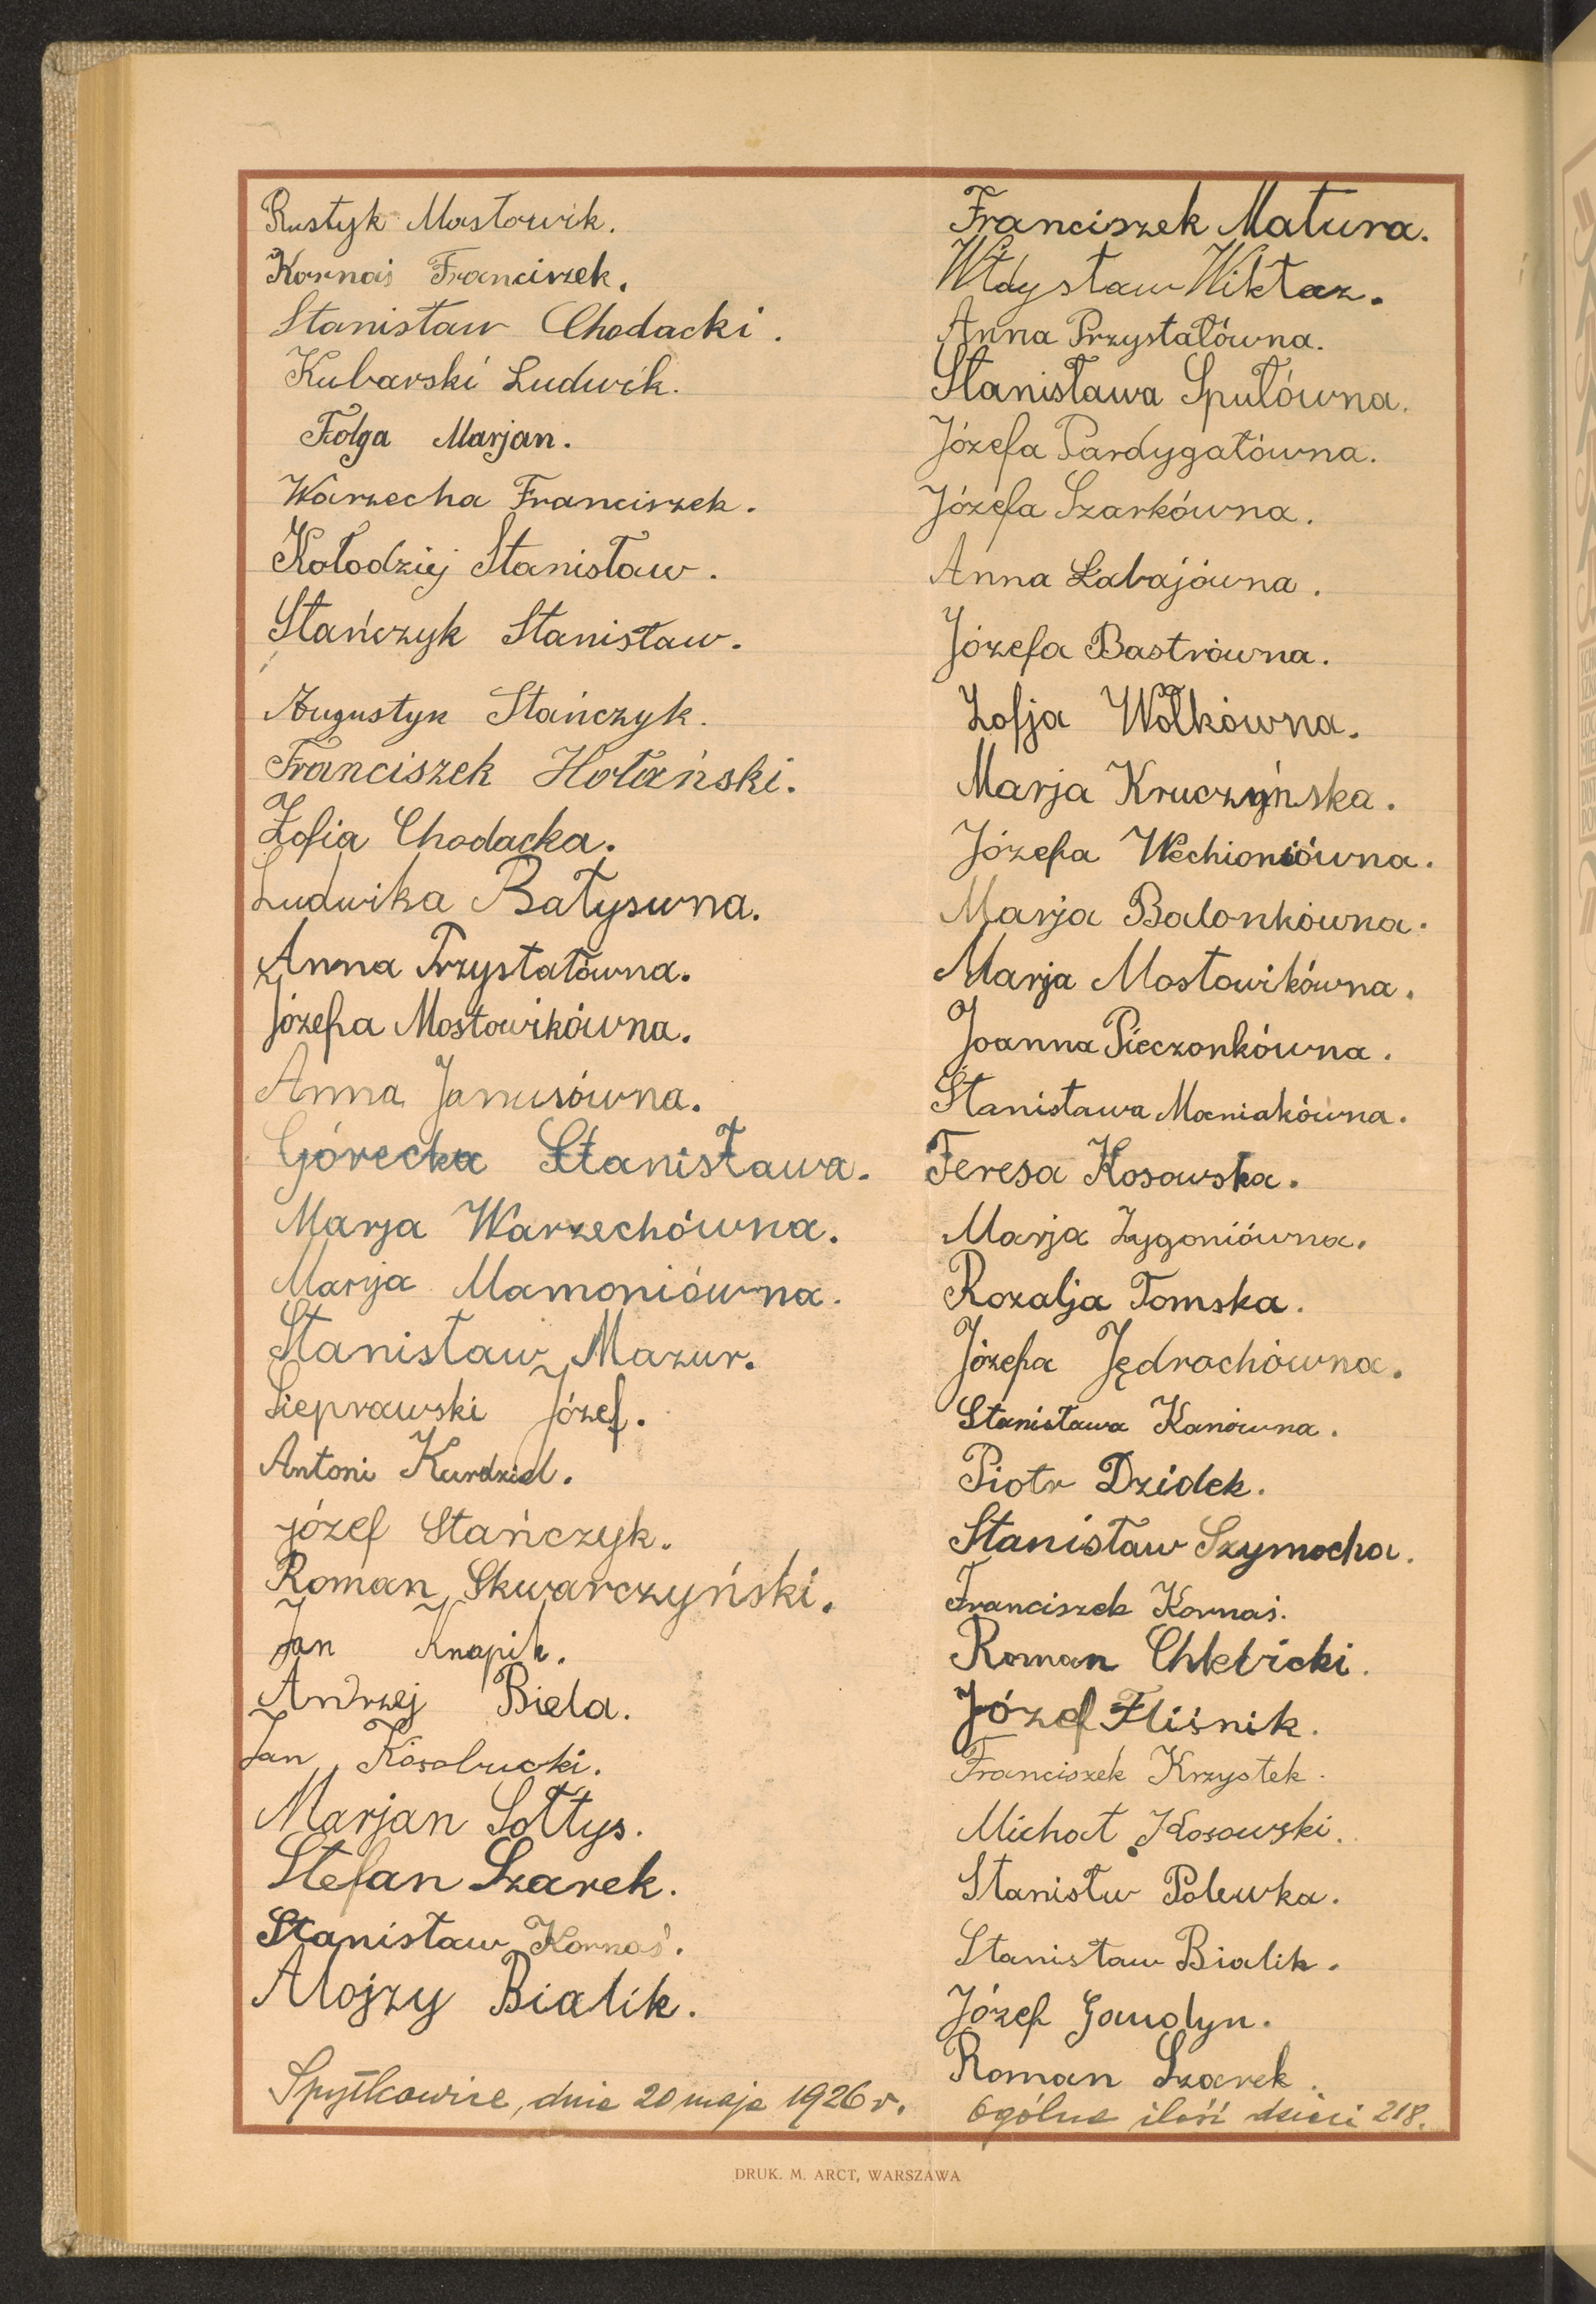 Rustyk Mastowik.
Kornaś Franciszek.
Stanisław Chodacki.
Kubarski Ludwik.
Folga Marjan.
Warzecha Franciszek.
Kołodziej Stanisław.
Stańczyk Stanisław.
Augustyn Stańczyk.
Franciszek Hołański.
Zofia Chodacka.
Ludwika Bałysuna.
Anna Przystałówna.
Józefa Mostowikówna.
Anna Janusówna.
Górecka Stanisława.
Marja Warzechówna.
Marja Mamoniówna.
Stanisław Mazur.
Sieprawski Józef.
Antoni Kurdziel.
Józef Stańczyk.
Roman Skwarczyński.
Jan Knapik.
Andrzej Biela.
Jan Kosobucki.
Marjan Sołtys.
Stefan Szarek.
Stanisław Kornaś.
Alojzy Bialik.
Spytkowice, dnia 20 maja 1926 r.
Franciszek Matura.
Władysław Wiktor.
Anna Przystałówna.
Stanisława Sputówna.
Józefa Pardygałówna.
Józefa Szarkówna.
Anna Łabajówna.
Józefa Bastrówna.
Zofja Wölkówna.
Marja Kruczyńska.
Józefa Wechioniówna.
Marja Balonkówna.
Marja Mostowikówna.
Joanna Pieczonkówna.
Stanisława Maniakówna.
Teresa Kosowska.
Marja Zygoniówna.
Rozalja Tomska.
Józefa Jędrochówna.
Stanisława Kaniówna.
Piotr Dzidek.
Stanisław Szymocha.
Franciszek Kornaś.
Roman Chlebicki.
Józef Fliśnik.
Franciszek Krzystek.
Michał Kosowski.
Stanistw Polewka.
Stanisław Bialik.
Józef Gawdyn.
Roman Szarek.
Ogólna ilość dzieci 218.
DRUK. M. ARCT, WARSZAWA